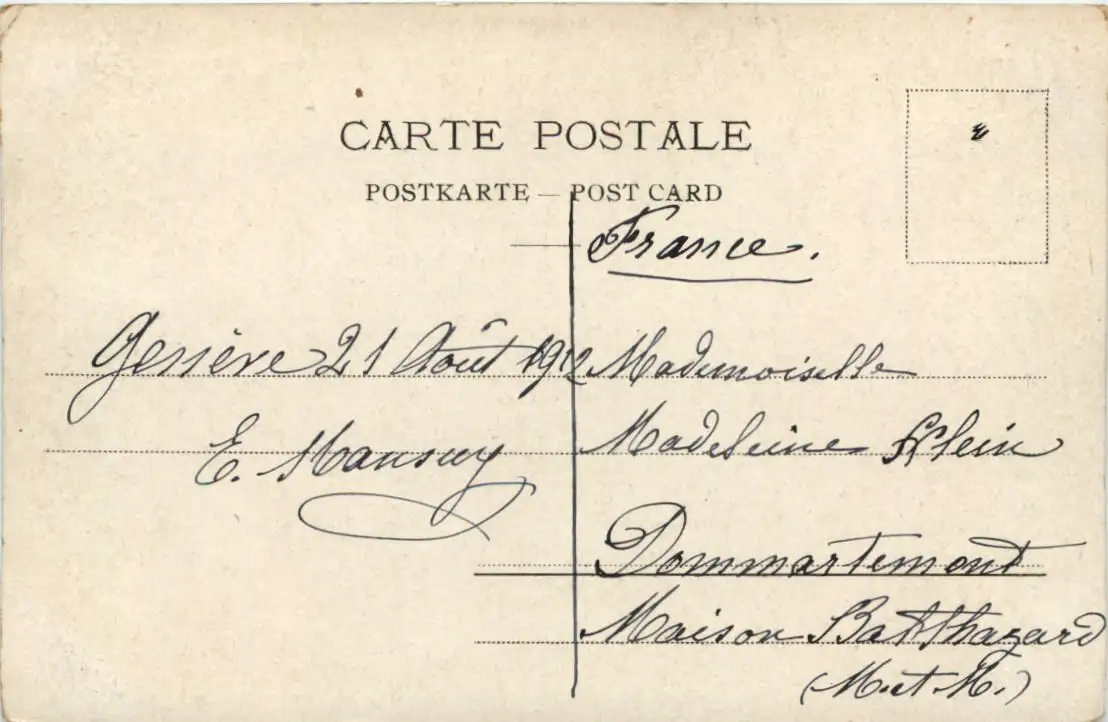 CARTE POSTALE
POSTKARTE — POST CARD
France.
Genève 21 Août 1912
E. Mansuy
Mademoiselle
Madeleine Klein
Dommartemont
Maison Balthazard
(M. et M.)